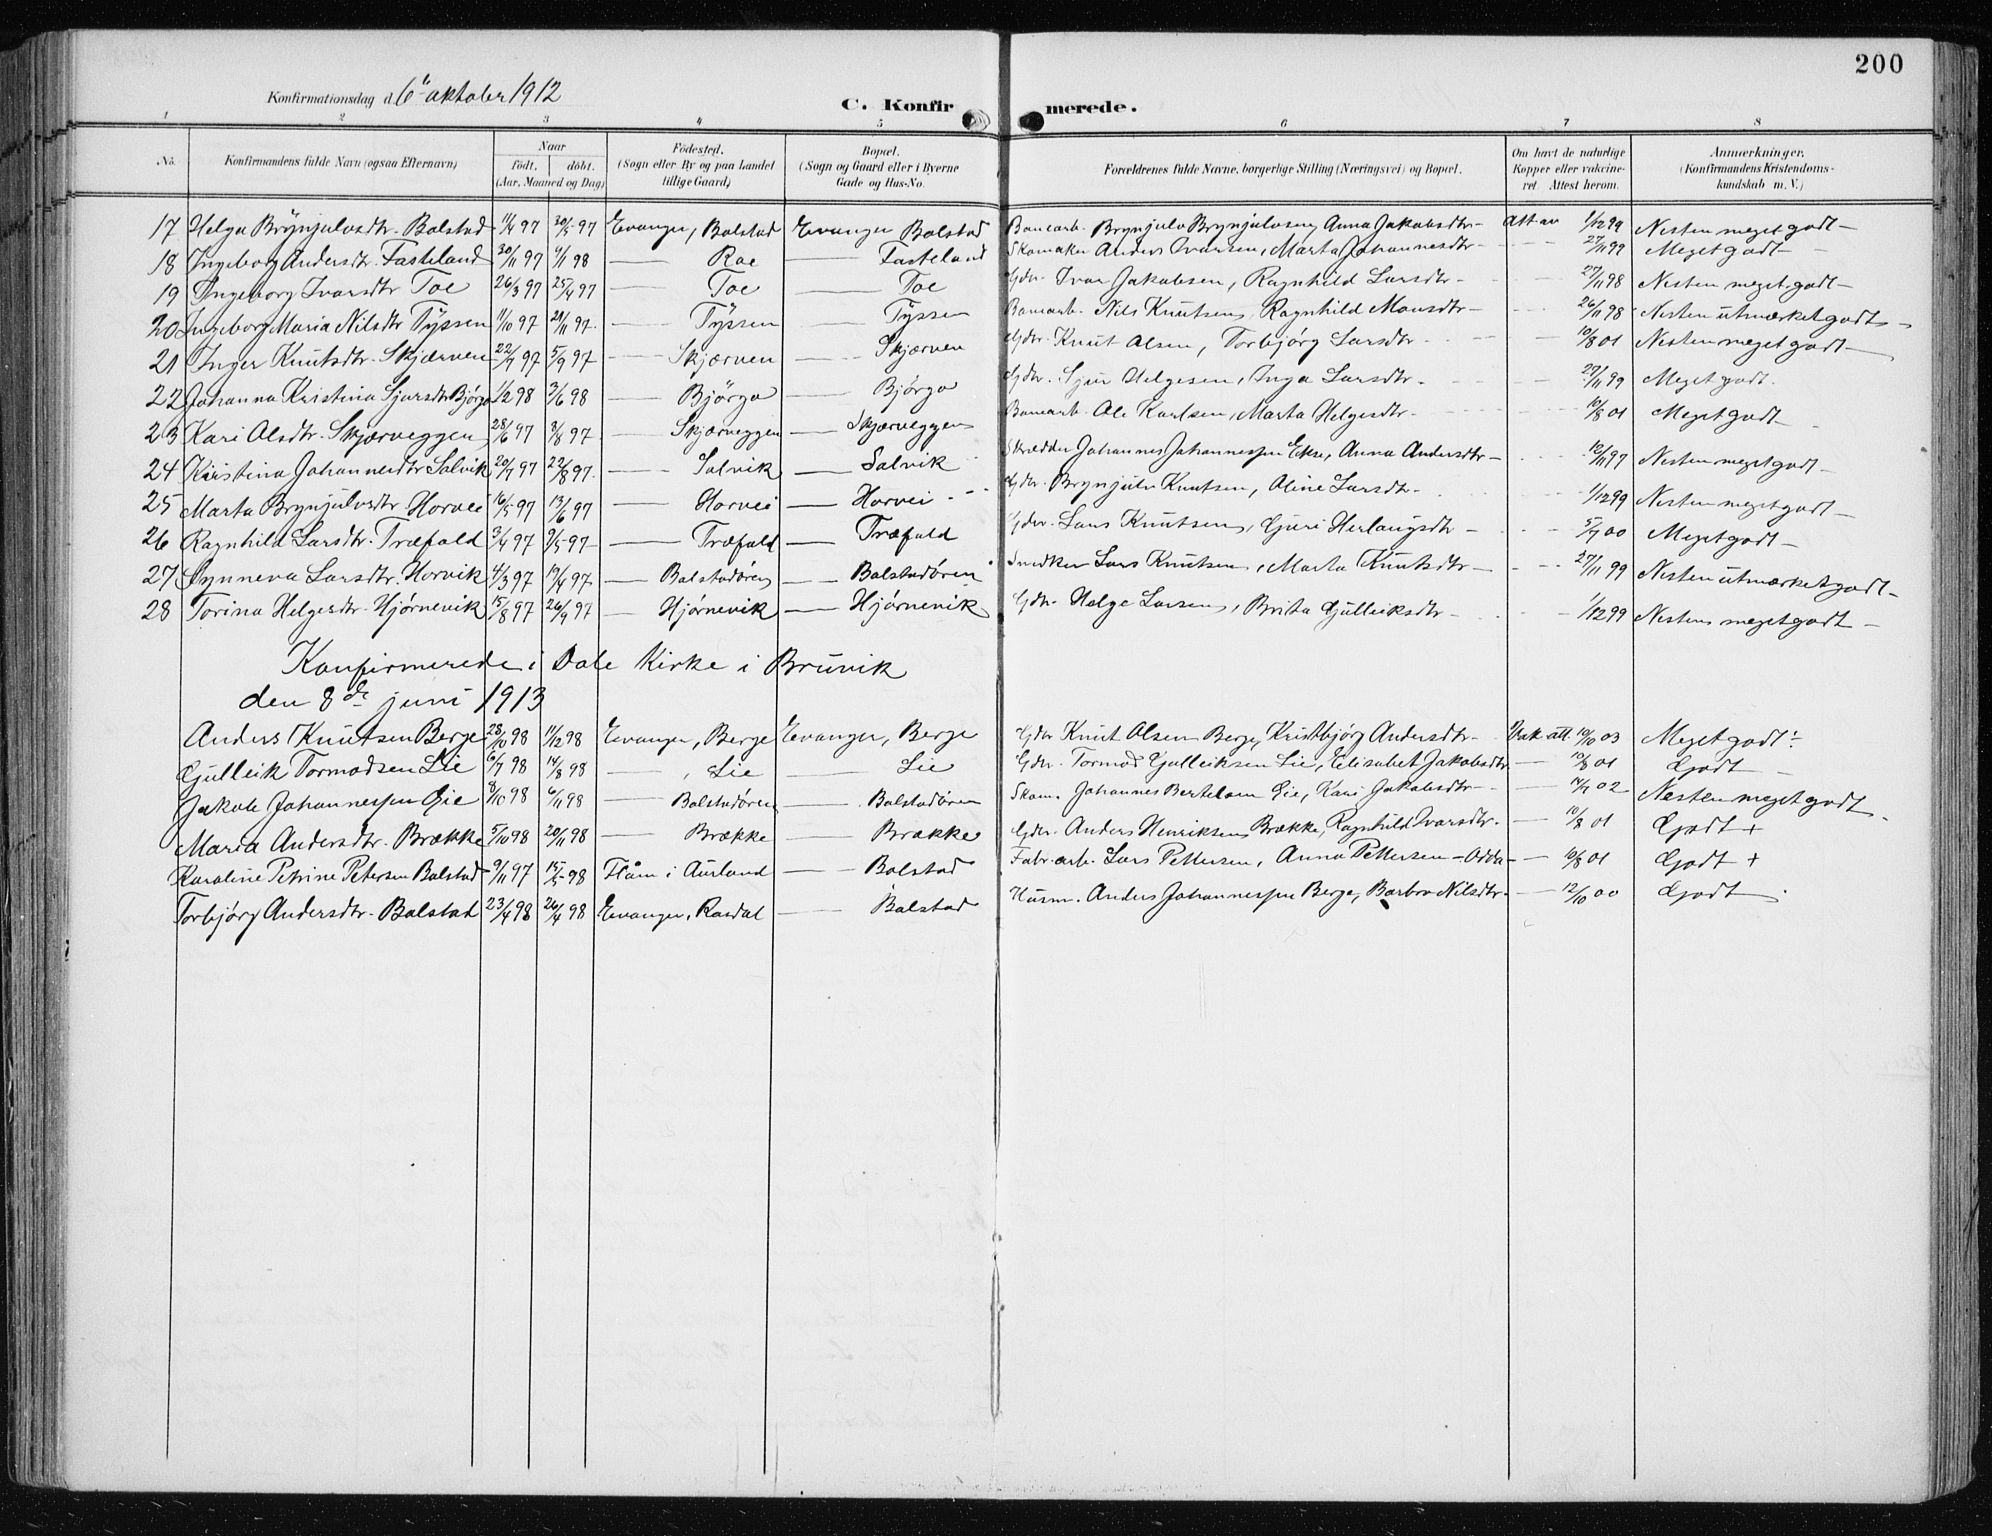 200
Konfirmationsdag d. 6te oktober 1912 C. Konfirmerede.
1 2 3 4 5 6 7 8
No. Konfirmandens fulde Navn (ogsaa Efternavn) Naar födt. döbt. (Aar, Maaned og Dag) Födested. (Sogn eller By og paa Landet tillige Gaard) Bopæl. (Sogn og Gaard eller i Byerne Gade og Hus-No. Forældrenes fulde Navne, borgerlige Stilling (Næringsvei) og Bopæl. Om havt de naturlige Kopper eller vakcineret. Attest herom. Anmærkninger. (Konfirmandens Kristendomskundskab m. V.)
17 Helga Brynjulvsdtr. Bolstad 11/4 97 30/5 97 Evanger, Bolstad Evanger Bolstad Banearb. Brynjulv Brynjulvsen, Anna Jakobsdtr - Att. av 1/12 99 Nesten meget godt -
18 Ingeborg Andersdtr. Fasteland 30/11 97 6/1 98 — Roe — Fasteland Skomaker Anders Ivarsen, Marta Johannesdtr - - - 27/11 99 Meget godt -
19 Ingeborg Ivarsdtr Toe 26/3 97 25/4 97 — Toe — Toe Gdbr. Ivar Jakobsen, Ragnhild Larsdtr - - - 27/11 98 Nesten meget godt -
20 Ingeborg Maria Nilsdtr Tyssen 11/10 97 21/11 97 — Tyssen — Tyssen Banearb. Nils Knutsen, Ragnhild Monsdtr - - - 26/11 98 Nesten utmærket godt -
21 Inger Knutsdtr. Skjærven 22/7 97 5/9 97 — Skjærven — Skjærven Gdbr. Knut Olsen, Torbjørg Larsdtr - - - 10/8 01 Nesten meget godt -
22 Johanna Kristina Sjursdtr Bjørgo 1/2 98 3/6 98 — Bjørgo — Bjørgo Gdbr. Sjur Helgesen, Inga Larsdtr. - - 27/11 99 Meget godt.
23 Kari Olsdtr. Skjærveggen 28/6 97 3/8 97 — Skjærveggen — Skjærveggen Banearb. Ole Karlsen, Marta Helgesdtr - - - 10/8 01 Meget godt -
24 Kristina Johannesdtr Solvik 20/7 97 22/8 97 — Solvik — Solvik Skrædder Johannes Johannessen Ekse, Anna Andersdtr - - - 10/11 97 Nesten meget godt -
25 Marta Brynjulvsdtr. Horvei 16/5 97 13/6 97 — Horvei — Horvei Gdbr. Brynjulv Knutsen, Oline Larsdtr. - - 1/12 99 Nesten meget godt -
26 Ragnhild Larsdtr. Træfald 3/4 97 9/5 97 — Træfald — Træfald Gdbr. Lars Knutsen, Guri Herlaugsdtr - - - 5/7 00 Meget godt -
27 Synneva Larsdtr. Horvik 4/3 97 19/4 97 — Bolstadøren — Bolstadøren Snedker Lars Knutsen, Marta Knutsdtr - - - 27/11 99 Nesten utmærket godt -
28 Torina Helgesdtr. Hjørnevik 15/8 97 26/9 97 — Hjørnevik — Hjørnevik Gdbr. Helge Larsen, Brita Gulleiksdtr - - - 1/12 99 Nesten meget godt -
Konfirmerede i Dale Kirke i Bruvik
den 8de juni 1913
Anders Knutsen Berge 28/10 98 11/12 98 Evanger, Berge Evanger, Berge Gdbr Knut Olsen Berge, Kristbjørg Andersdtr - Vak. att. 10/10 03 Meget godt -
Gulleik Tormodsen Lie 6/7 98 14/8 98 — Lie — Lie Gdbr. Tormod Gulleiksen Lie, Elisabet Jakobsdtr - — 10/8 01 Godt -
Jakob Johannessen Gie 8/10 98 6/11 98 — Bolstadøren — Bolstadøren Skom. Johannes Bertelsen Gie, Kari Jakobsdtr - — 14/7 02 Nesten meget godt -
Maria Andersdtr. Brække 5/10 98 20/11 98 — Brække — Brække Gdbr. Anders Henriksen Brække, Ragnhild Ivarsdtr. — 10/8 01 Godt +
Karoline Petrine Petersen Bolstad 9/11 97 15/5 98 Flåm i Aurland — Bolstad Fabr. arb. Lars Pettersen, Anna Pettersen - Odda - — 10/8 01 Godt +
Torbjørg Andersdtr. Bolstad 23/4 98 26/4 98 Evanger, Rasdal — Bolstad Husm. Anders Johannessen Berge, Barbro Nilsdtr. — 12/10 00 Godt -